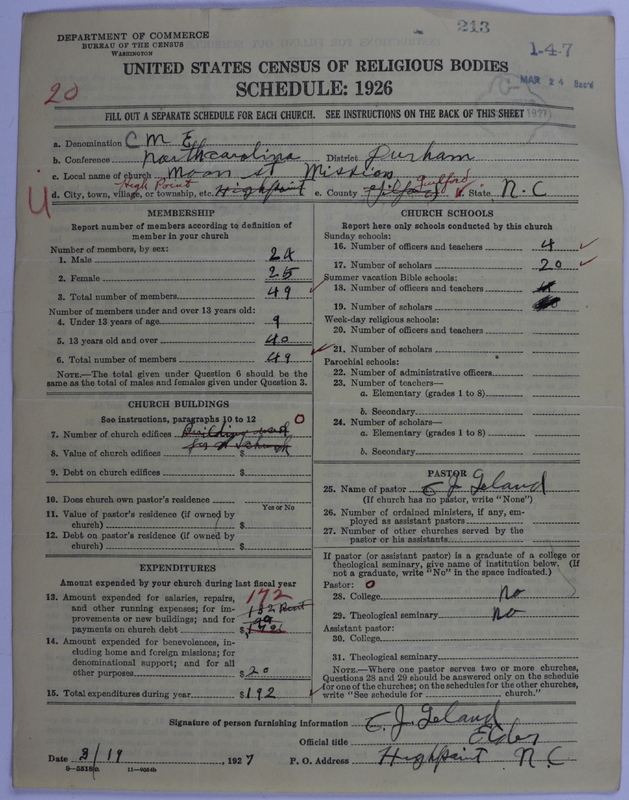 213
DEPARTMENT OF COMMERCE
BUREAU OF THE CENSUS
WASHINGTON
1-4-7
MAR 24 Rec'd
1927
UNITED STATES CENSUS OF RELIGIOUS BODIES
20
SCHEDULE: 1926
FILL OUT A SEPARATE SCHEDULE FOR EACH CHURCH. SEE INSTRUCTIONS ON THE BACK OF THIS SHEET
a. Denomination C M E
b. Conference North carolina District Durham
c. Local name of church Moon st Mission
High Point Guilford
d. City, town, village, or township, etc. Highpoint e. County State N. C
MEMBERSHIP
Report number of members according to definition of member in your church
Number of members, by sex:
1. Male 24
2. Female 25
3. Total number of members 49
Number of members under and over 13 years old:
4. Under 13 years of age 9
5. 13 years old and over 40
6. Total number of members 49
NOTE.—The total given under Question 6 should be
same as the total of males and females given under Question 3.
CHURCH BUILDINGS
See instructions, paragraphs 10 to 12 0
7. Number of church edifices Building used
8. Value of church edifices $ for a church
9. Debt on church edifices $
10. Does church own pastor's residence
Yes or No
11. Value of pastor's residence (if owned by
church) $
12. Debt on pastor's residence (if owned by
church) $
EXPENDITURES
Amount expended by your church during last fiscal year
13. Amount expended for salaries, repairs, 172
and other running expenses; for im- 132 Rent
provements or new buildings; and for
payments on church debt $172
14. Amount expended for benevolences, in-
cluding home and foreign missions; for
denominational support; and for all
other purposes $20
15. Total expenditures during year $192
CHURCH SCHOOLS
Report here only schools conducted by this church
Sunday schools:
16. Number of officers and teachers 4
17. Number of scholars 20
Summer vacation Bible schools:
18. Number of officers and teachers
19. Number of scholars
Week-day religious schools:
20. Number of officers and teachers
21. Number of scholars
Parochial schools:
22. Number of administrative officers
23. Number of teachers—
a. Elementary (grades 1 to 8)
b. Secondary
24. Number of scholars—
a. Elementary (grades 1 to 8)
b. Secondary
PASTOR
25. Name of pastor E J Leland
(If church has no pastor, write "None")
26. Number of ordained ministers, if any, em-
ployed as assistant pastors
27. Number of other churches served by the
pastor or his assistants
If pastor (or assistant pastor) is a graduate of a college or
theological seminary, give name of institution below. (If
not a graduate, write "No" in the space indicated.)
Pastor: 0
28. College no
29. Theological seminary no
Assistant pastor:
30. College
31. Theological seminary
NOTE.—Where one pastor serves two or more churches,
Questions 28 and 29 should be answered only on the schedule
for one of the churches; on the schedules for the other churches,
write "See schedule for church."
Signature of person furnishing information E. J. Leland
Official title Elder
Date 3/19, 1927 P. O. Address Highpoint N. C